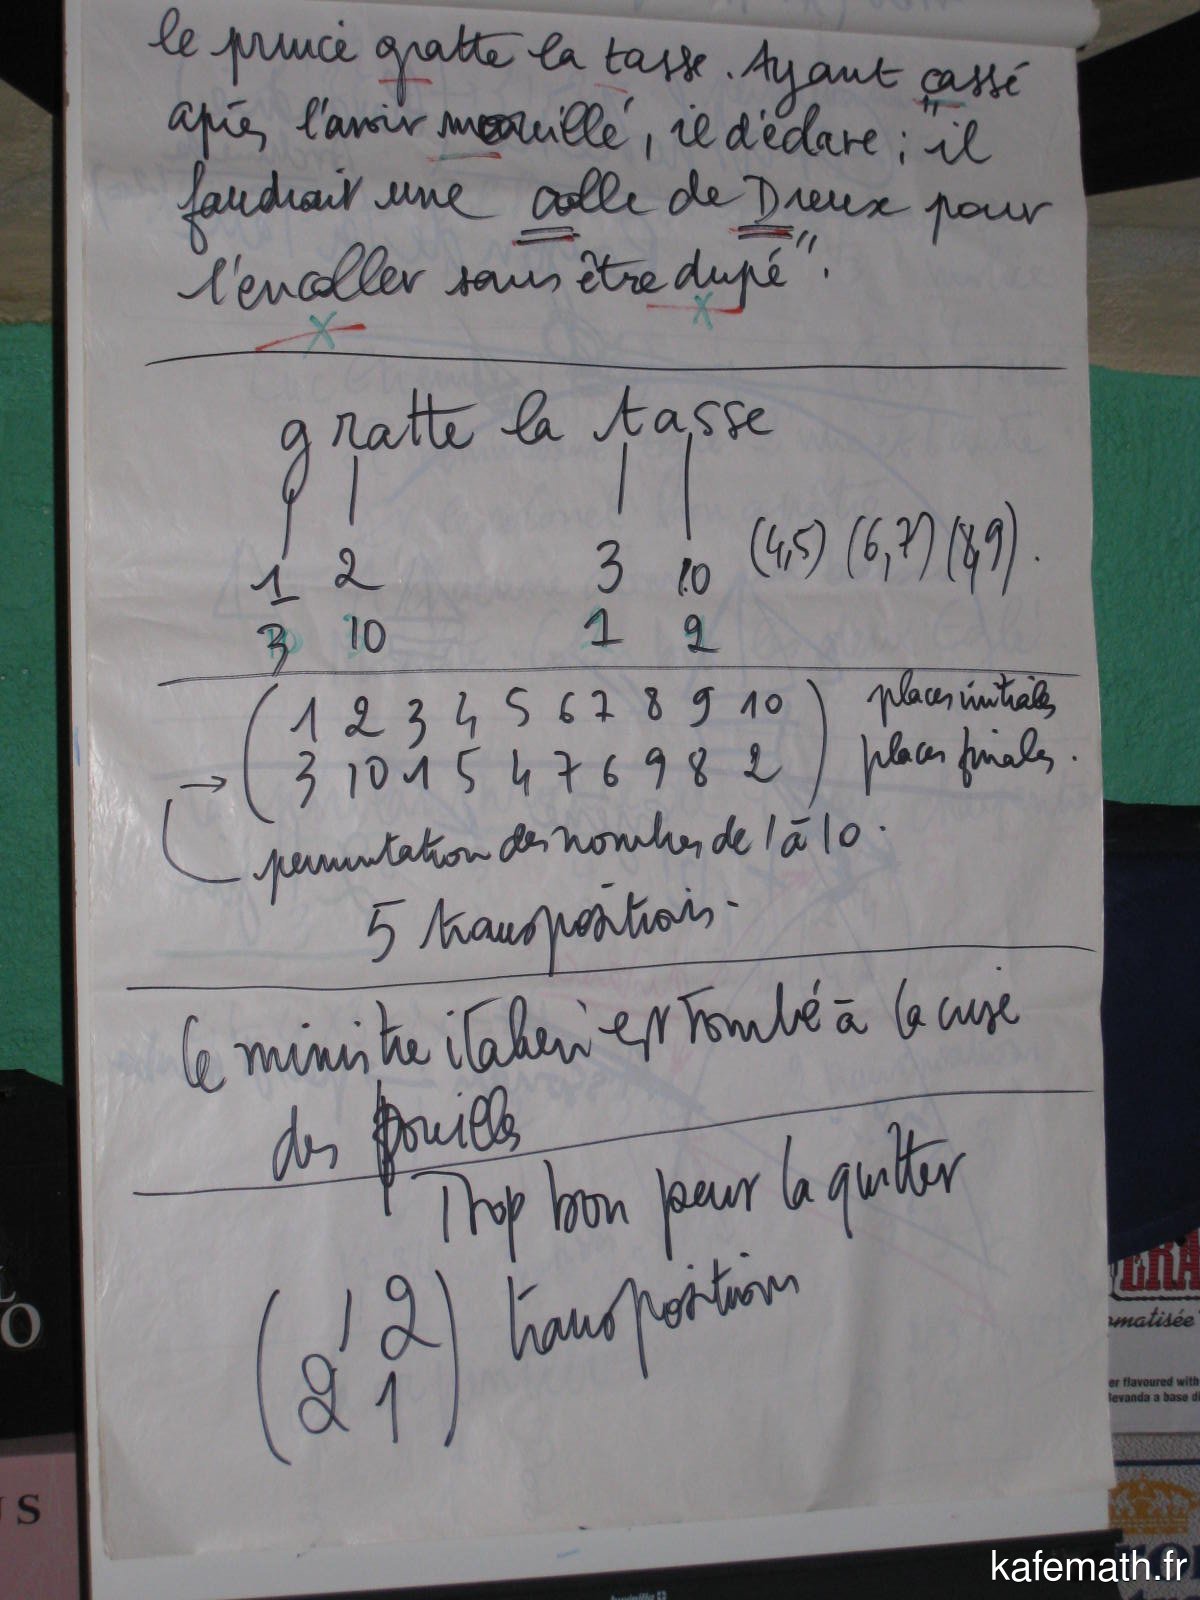 le prince gratte la tasse. Ayant cassé
après l'avoir mouillé, il déclare : "il
faudrait une colle de Dreux pour
l'encoller sans être dupé".
X X
gratte la tasse
1 2 3 10 (4,5) (6,7) (8,9).
3 10 1 2
1 2 3 4 5 6 7 8 9 10 places initiales
→ 3 10 1 5 4 7 6 9 8 2 places finales.
permutation des nombres de 1 à 10.
5 transpositions.
Le ministre italien est tombé à la cuse
des pouilles
Trop bon pour la quitter
(1 2) transpositions
2 1
ERA
omatisée
er flavoured with
evanda a base di
O
US
kafemath.fr